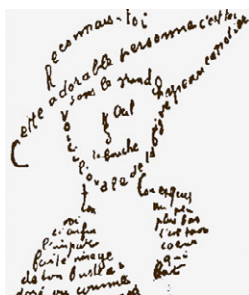 Reconnais-toi
Cette adorable personne c'est toi
Sous le grand chapeau canotier
Œil
Nez
la bouche
Voici l'ovale de ta figure
Ton cou exquis
Voici enfin
l'imparfaite image
de ton buste a
doré vu comme
un peu
plus bas
c'est ton
cœur
qui
bat